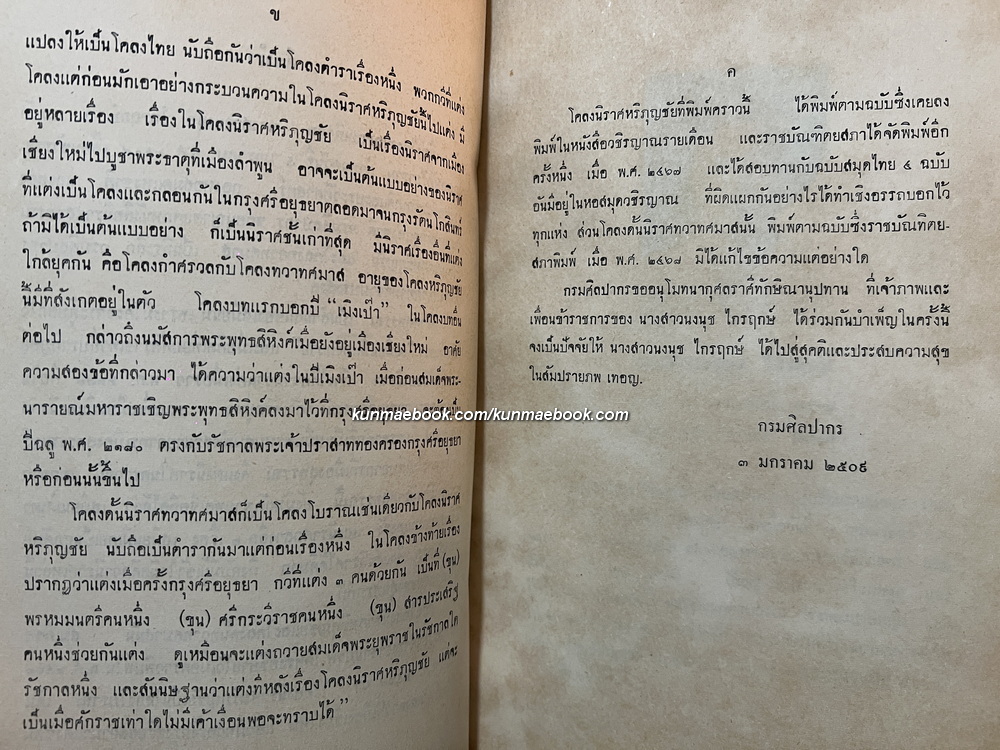 ข
แปลงให้เป็นโคลงไทย นับถือกันว่าเป็นโคลงตำราเรื่องหนึ่ง พวกกวีที่แต่ง
โคลงแต่ก่อนมักเอาอย่างกระบวนความในโคลงนิราศหริภุญชัยนี้ไปแต่ง มี
อยู่หลายเรื่อง เรื่องในโคลงนิราศหริภุญชัย เป็นเรื่องนิราศจากเมือง
เชียงใหม่ไปบูชาพระธาตุที่เมืองลำพูน อาจจะเป็นต้นแบบอย่างของนิราศ
ที่แต่งเป็นโคลงและกลอนกันในกรุงศรีอยุธยาตลอดมาจนกรุงรัตนโกสินทร์
ถ้ามิได้เป็นต้นแบบอย่าง ก็เป็นนิราศชั้นเก่าที่สุด มีนิราศเรื่องอื่นที่แต่ง
ใกล้ยุคกัน คือโคลงกำศรวลกับโคลงทวาทศมาส อายุของโคลงหริภุญชัย
นี้มีที่สังเกตอยู่ในตัว โคลงบทแรกบอกปี “เมิงเป๊า” ในโคลงบทอื่น
ต่อไป กล่าวถึงนมัสการพระพุทธสิหิงค์เมื่อยังอยู่เมืองเชียงใหม่ อาศัย
ความสองข้อที่กล่าวมา ได้ความว่าแต่งในปีเมิงเป๊า เมื่อก่อนสมเด็จพระ-
นารายณ์มหาราชเชิญพระพุทธสิหิงค์ลงมาไว้ที่กรุงศรีอยุธยา
kunmaebook.com/kunmaebook.com
ปีฉลู พ.ศ. ๒๑๘๐ ตรงกับรัชกาลพระเจ้าปราสาททองครองกรุงศรีอยุธยา
หรือก่อนนั้นขึ้นไป
โคลงดั้นนิราศทวาทศมาสก็เป็นโคลงโบราณเช่นเดียวกับโคลงนิราศ
หริภุญชัย นับถือเป็นตำรากันมาแต่ก่อนเรื่องหนึ่ง ในโคลงข้างท้ายเรื่อง
ปรากฏว่าแต่งเมื่อครั้งกรุงศรีอยุธยา กวีที่แต่ง ๓ คนด้วยกัน เป็นที่ (ขุน)
พรหมมนตรีคนหนึ่ง (ขุน) ศรีกระวีราชคนหนึ่ง (ขุน) สารประเสริฐ
คนหนึ่งช่วยกันแต่ง ดูเหมือนจะแต่งถวายสมเด็จพระยุพราชในรัชกาลใด
รัชกาลหนึ่ง และสันนิษฐานว่าแต่งทีหลังเรื่องโคลงนิราศหริภุญชัย แต่จะ
เป็นเมื่อศักราชเท่าใดไม่มีเค้าเงื่อนพอจะทราบได้”
ค
โคลงนิราศหริภุญชัยที่พิมพ์คราวนี้ ได้พิมพ์ตามฉบับซึ่งเคยลง
พิมพ์ในหนังสือวชิรญาณรายเดือน และราชบัณฑิตยสภาได้จัดพิมพ์อีก
ครั้งหนึ่ง เมื่อ พ.ศ. ๒๔๖๗ และได้สอบทานกับฉบับสมุดไทย ๔ ฉบับ
อันมีอยู่ในหอสมุดวชิรญาณ ที่ผิดแผกกันอย่างไรได้ทำเชิงอรรถบอกไว้
ทุกแห่ง ส่วนโคลงดั้นนิราศทวาทศมาสนั้น พิมพ์ตามฉบับซึ่งราชบัณฑิตย-
สภาพิมพ์ เมื่อ พ.ศ. ๒๔๖๘ มิได้แก้ไขข้อความแต่อย่างใด
กรมศิลปากรขออนุโมทนากุศลราศีทักษิณานุปทาน ที่เจ้าภาพและ
เพื่อนข้าราชการของ นางสาวนงนุช ไกรฤกษ์ ได้ร่วมกันบำเพ็ญในครั้งนี้
จงเป็นปัจจัยให้ นางสาวนงนุช ไกรฤกษ์ ได้ไปสู่สุคติและประสบความสุข
ในสัมปรายภพ เทอญ.
กรมศิลปากร
๓ มกราคม ๒๕๐๙